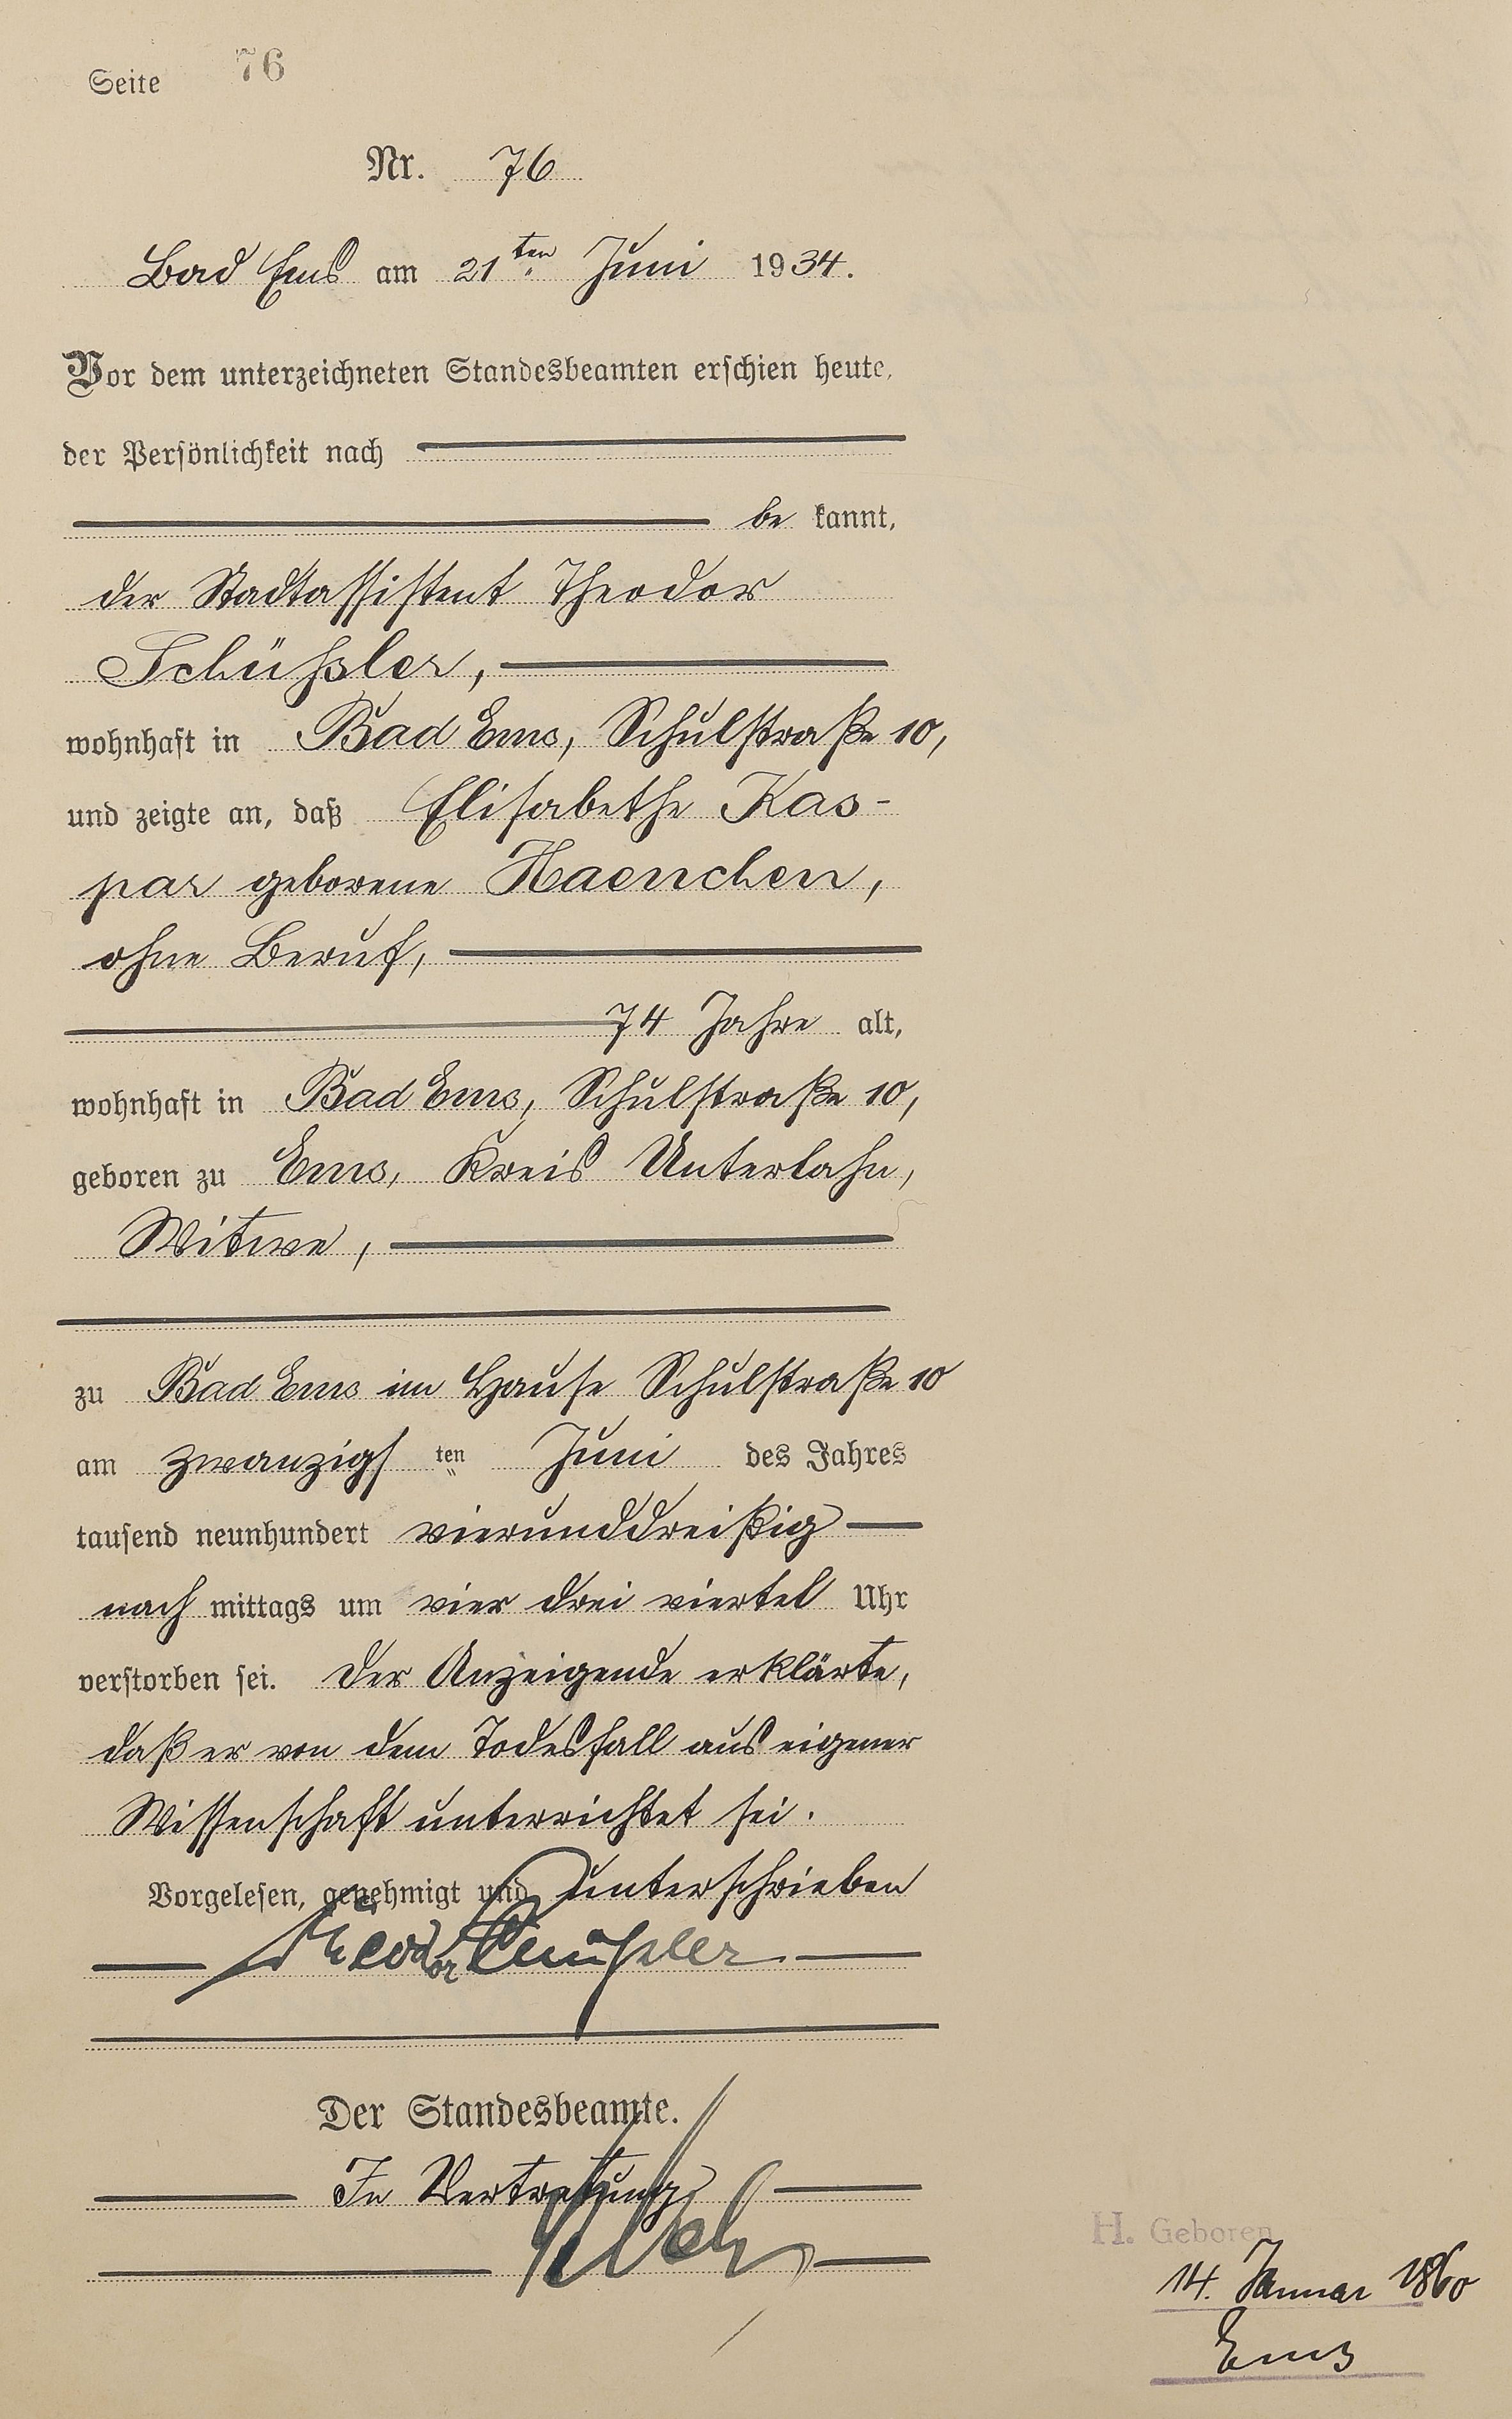 Seite 76
Nr. 76
Bad Ems am 21ten Juni 1934.
Vor dem unterzeichneten Standesbeamten erschien heute,
der Persönlichkeit nach
be kannt,
der Stadtassistent Theodor
Schüßler,
wohnhaft in Bad Ems, Schulstraße 10,
und zeigte an, daß Elisabethe Kas-
par geborene Haenchen,
ohne Beruf,
74 Jahre alt,
wohnhaft in Bad Ems, Schulstraße 10,
geboren zu Ems, Kreis Unterlahn,
Witwe,
zu Bad Ems im Hause Schulstraße 10
am zwanzigsten Juni des Jahres
tausend neunhundert vierunddreißig
nach mittags um vier drei viertel Uhr
verstorben sei. Der Anzeigende erklärte,
daß er von dem Todesfall aus eigener
Wissenschaft unterrichtet sei.
Vorgelesen, genehmigt und unterschrieben
Theodor Schüßler
Der Standesbeamte.
In Vertretung
H. Geboren
14. Januar 1860
Ems